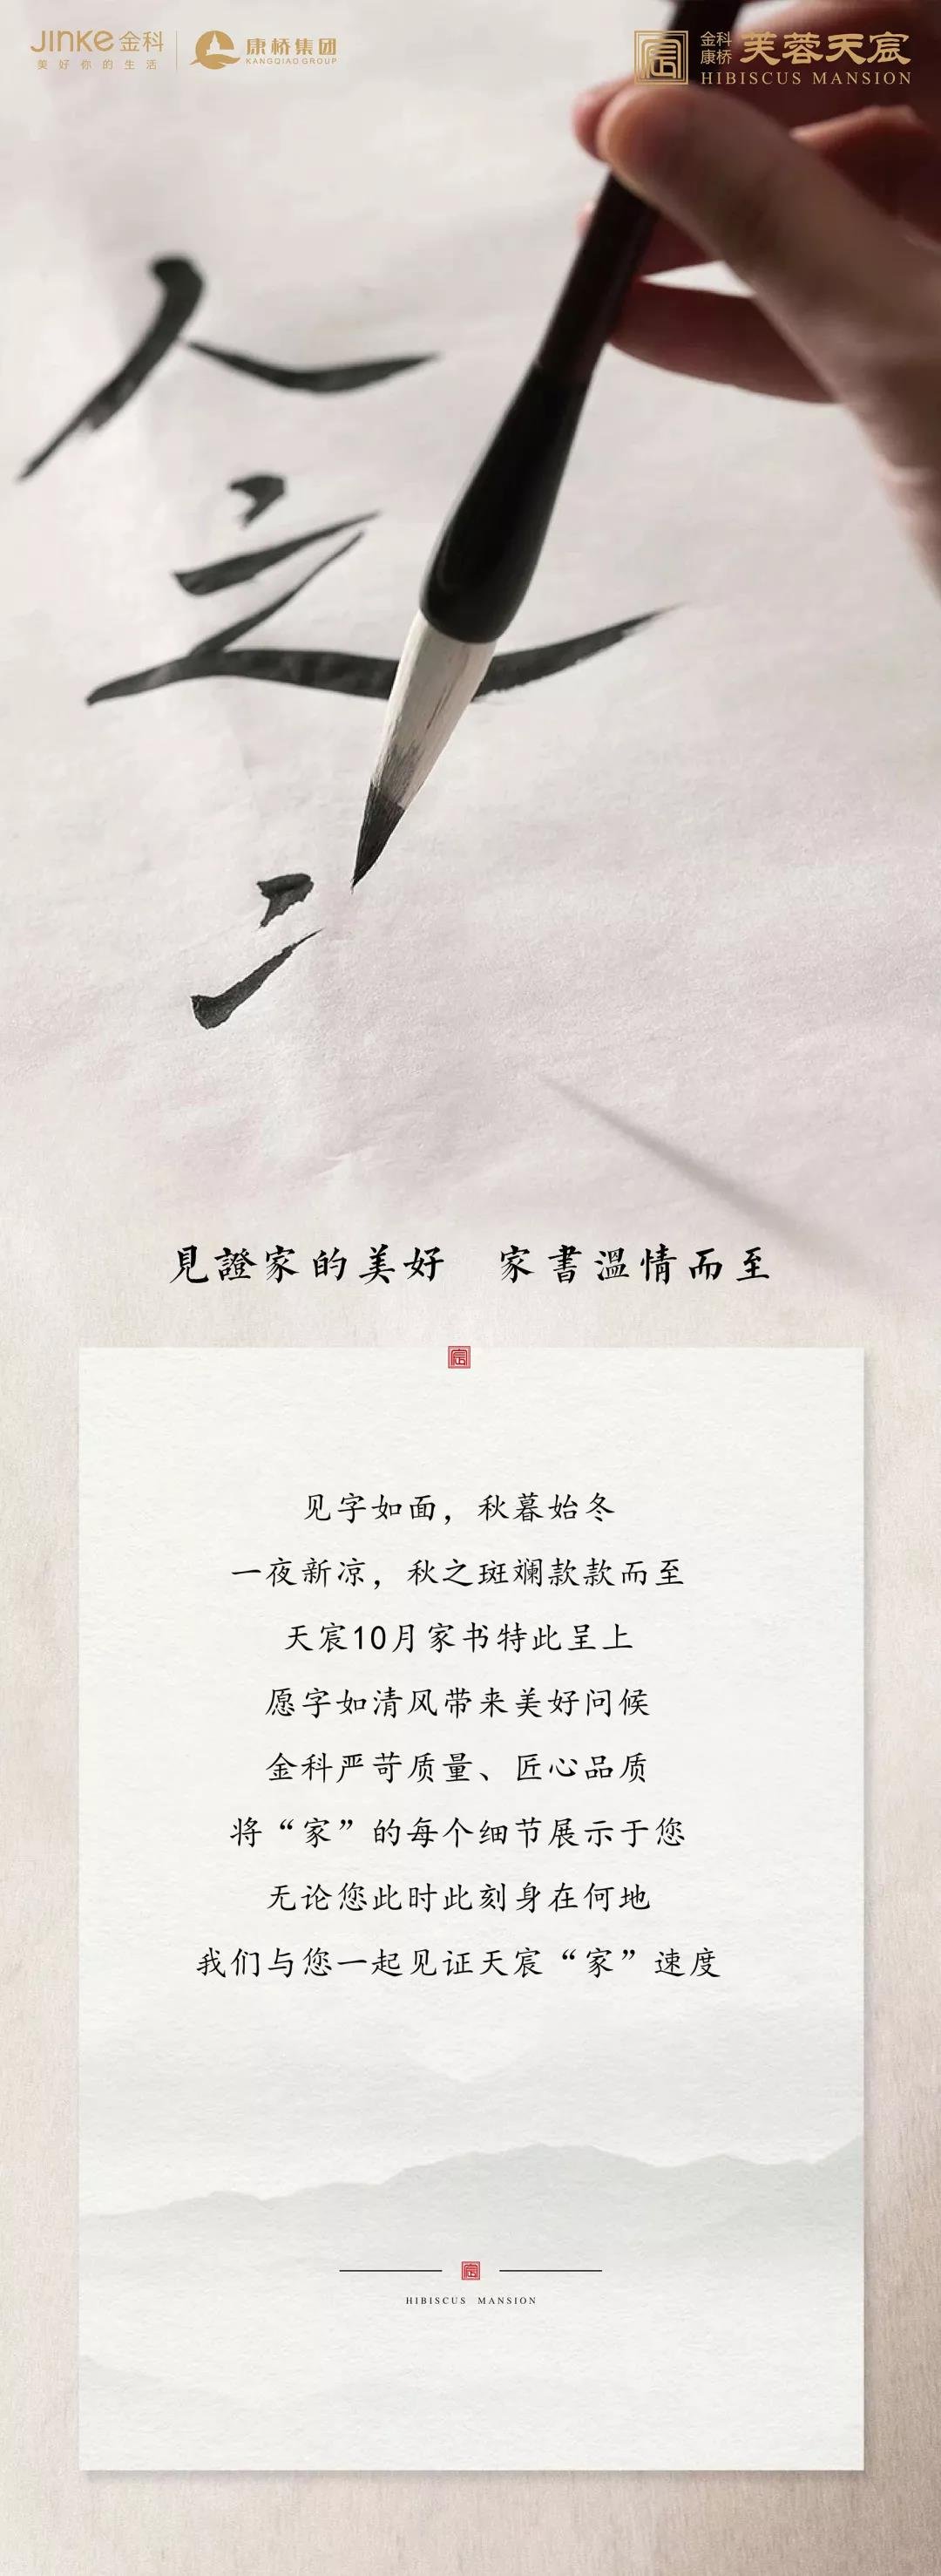 JINKE金科
美好你的生活
康桥集团
KANGQIAO GROUP
金科
康桥
芙蓉天宸
HIBISCUS MANSION
見證家的美好 家書溫情而至
宸
见字如面，秋暮始冬
一夜新凉，秋之斑斓款款而至
天宸10月家书特此呈上
愿字如清风带来美好问候
金科严苛质量、匠心品质
将“家”的每个细节展示于您
无论您此时此刻身在何地
我们与您一起见证天宸“家”速度
宸
HIBISCUS MANSION